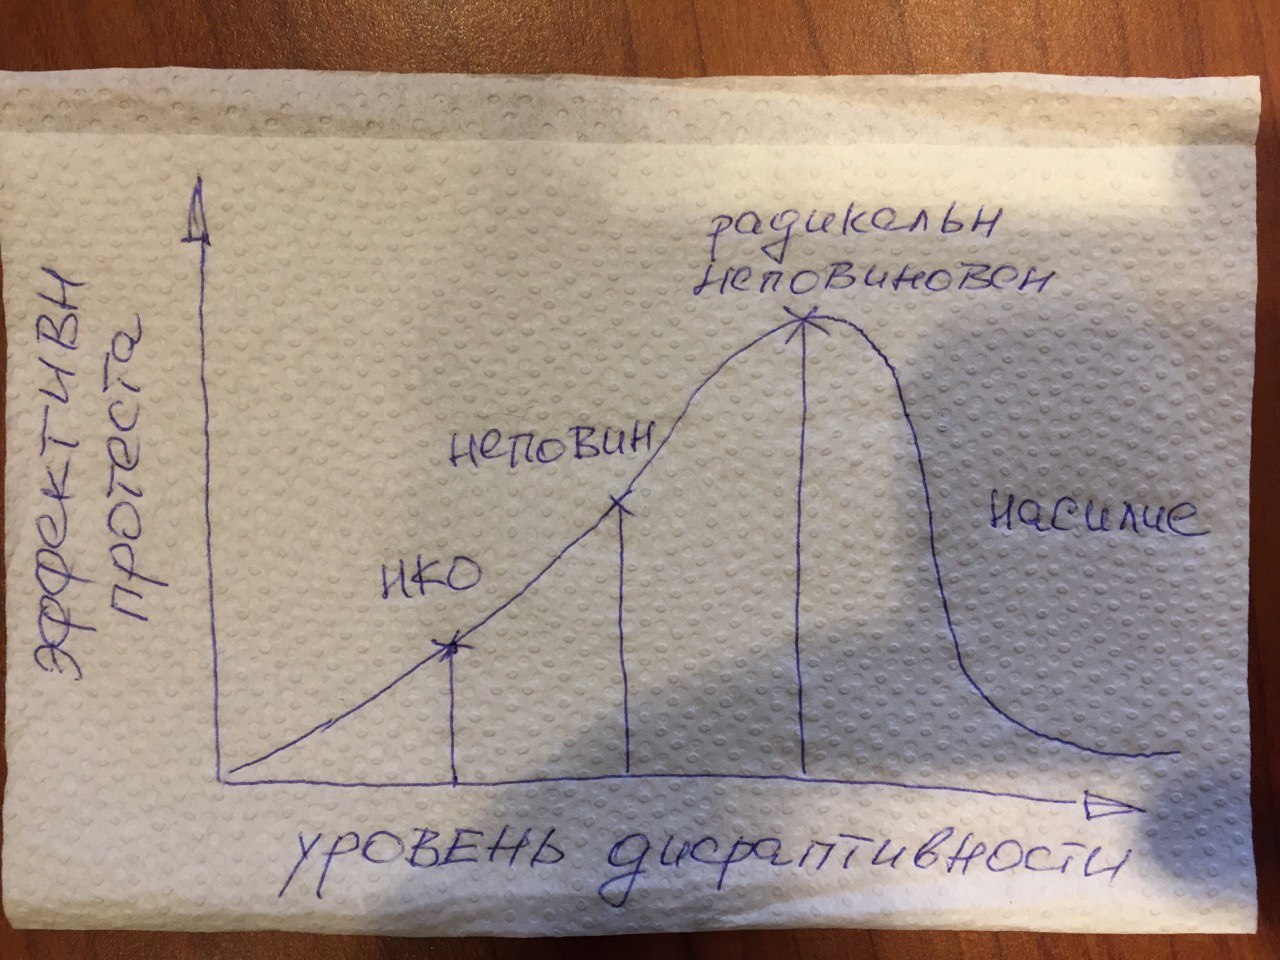 ЭФФЕКТИВН
ПРОТЕСТА
радикальн
неповиновен
неповин
НКО
насилие
УРОВЕНЬ дисраптивности